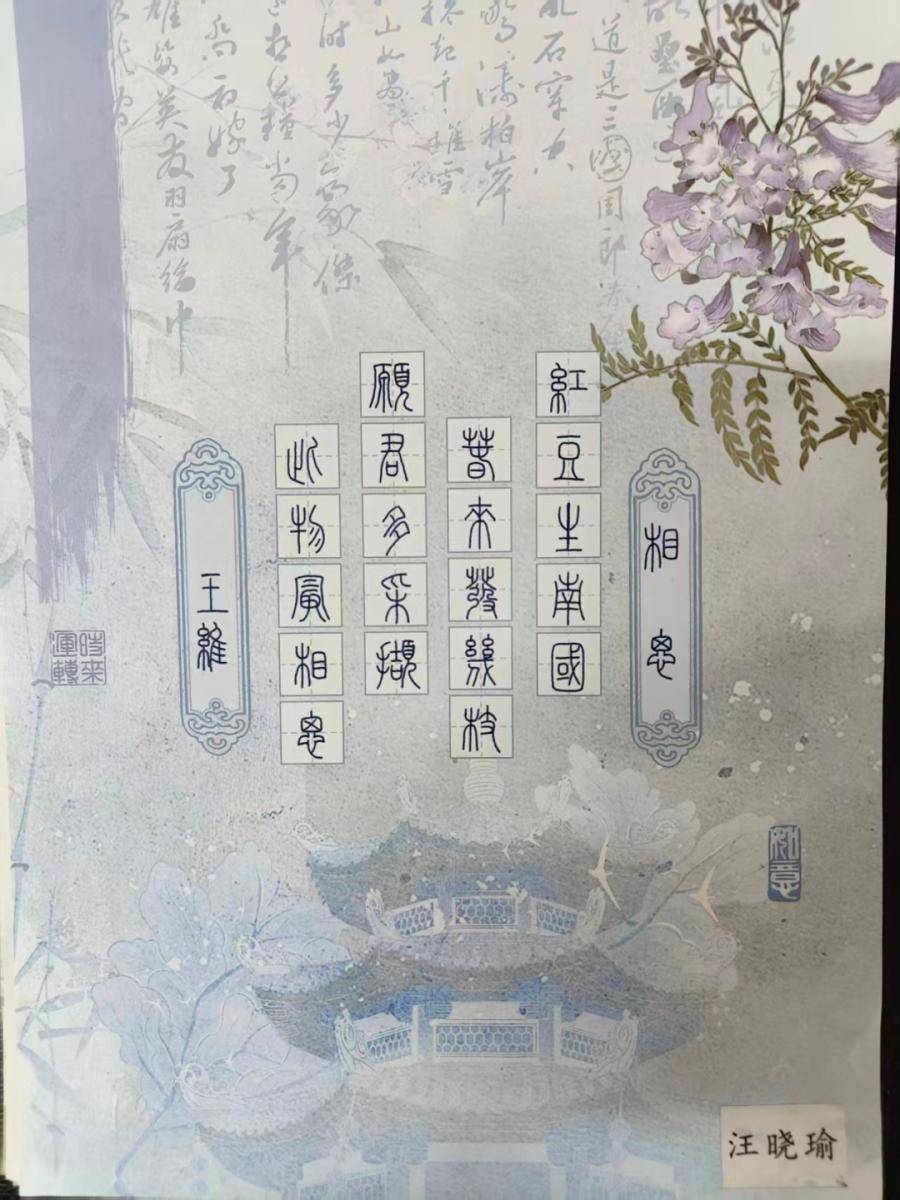 故壘西
道是三國周郎赤
石穿空
驚濤拍岸
起千堆雪
山如畫
時多少豪傑
想公瑾當年
初嫁了
雄姿英發羽扇綸巾
相思
紅豆生南國
春來發幾枝
願君多采擷
此物最相思
王維
時來運轉
如意
汪晓瑜